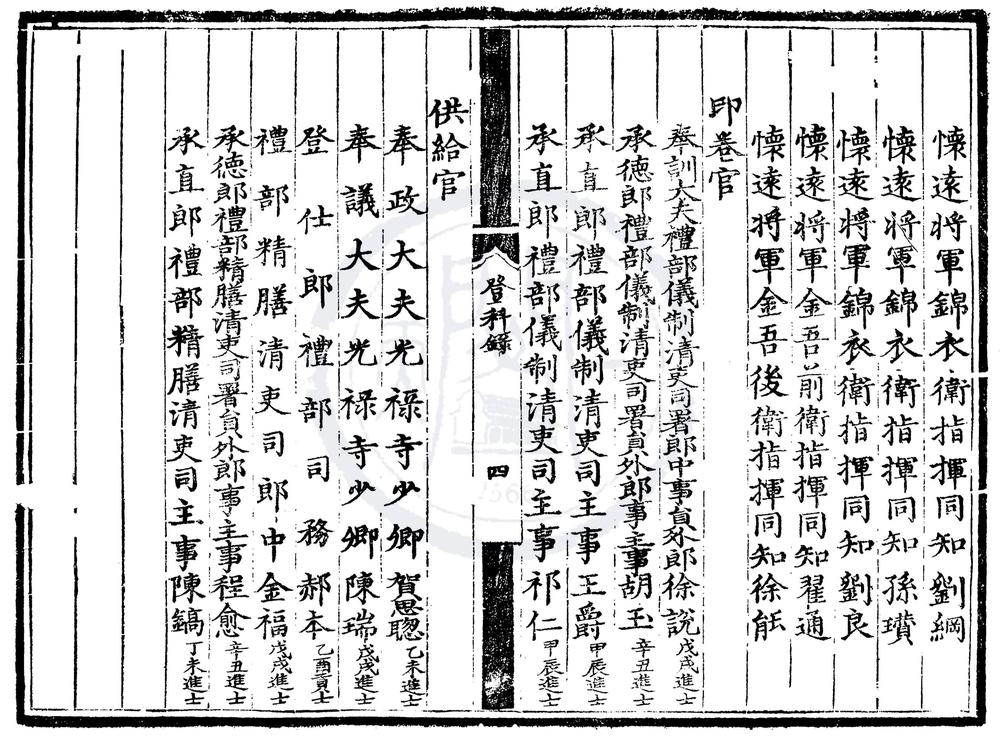 懷遠將軍錦衣衛指揮同知劉綱
懷遠將軍錦衣衛指揮同知孫瓚
懷遠將軍錦衣衛指揮同知劉良
懷遠將軍金吾前衛指揮同知翟通
懷遠將軍金吾後衛指揮同知徐能
印卷官
奉訓大夫禮部儀制清吏司署郎中事員外郎徐說戊戌進士
承德郎禮部儀制清吏司署員外郎事主事胡玉辛丑進士
承直郎禮部儀制清吏司主事王爵甲辰進士
承直郎禮部儀制清吏司主事祁仁甲辰進士
登科錄
四
供給官
奉政大夫光祿寺少卿賀思聰乙未進士
奉議大夫光祿寺少卿陳瑞戊戌進士
登仕郎禮部司務郝本乙酉貢士
禮部精膳清吏司郎中金福戊戌進士
承德郎禮部精膳清吏司署員外郎事主事程愈辛丑進士
承直郎禮部精膳清吏司主事陳鎬丁未進士